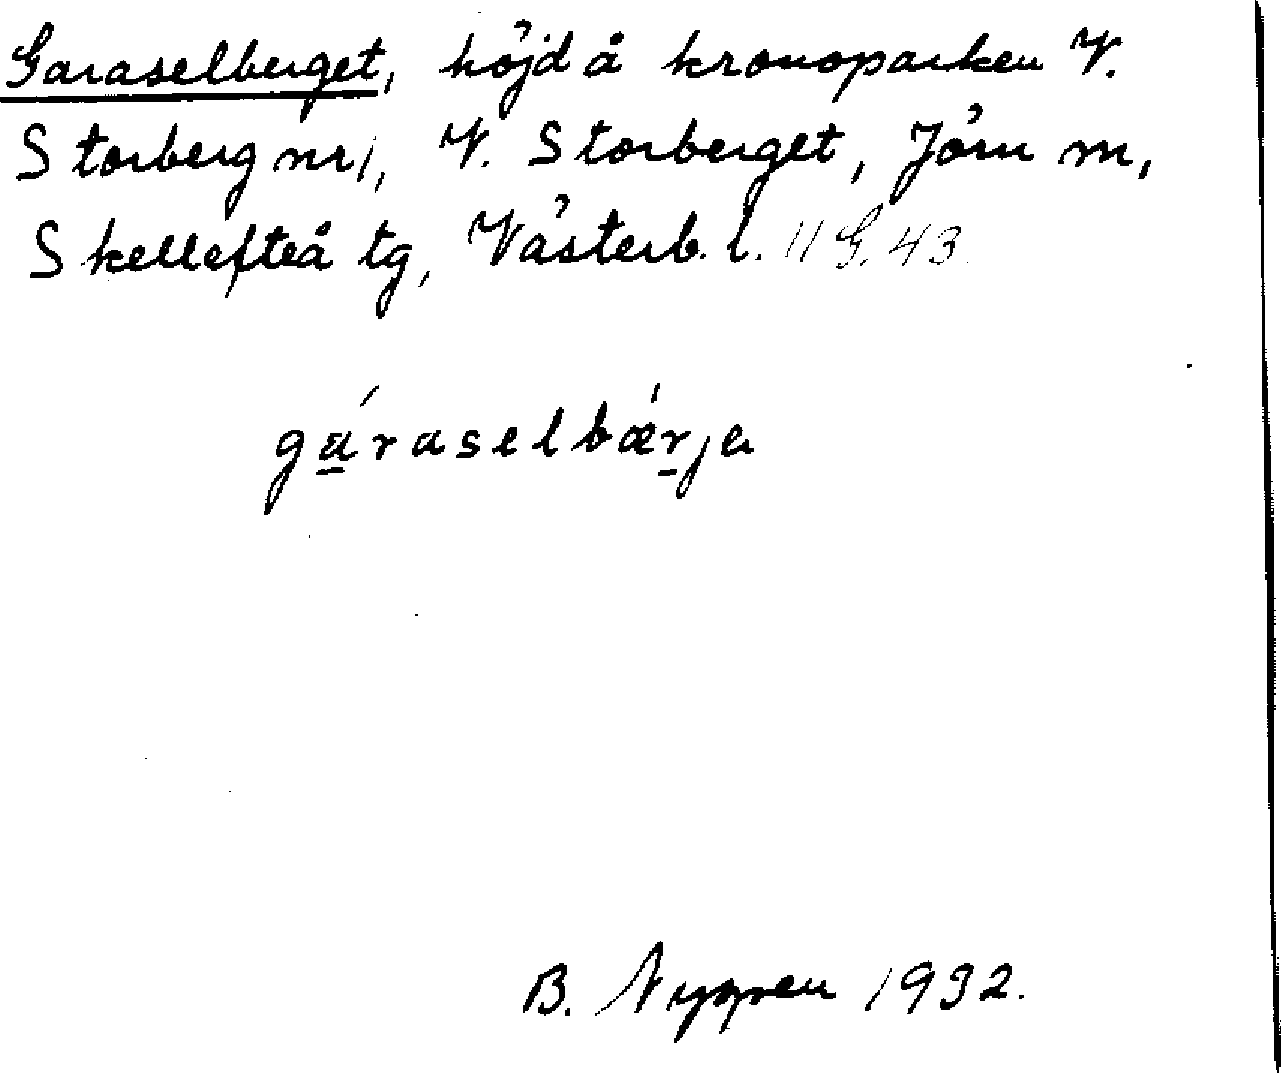 Garaselberget, höjd å kronoparken V.
Storberg nr 1, V. Storberget, Jörn m,
Skellefteå tg, Västerb. l. 11 G. 43
gáraselbǽrja
B. Nygren 1932.